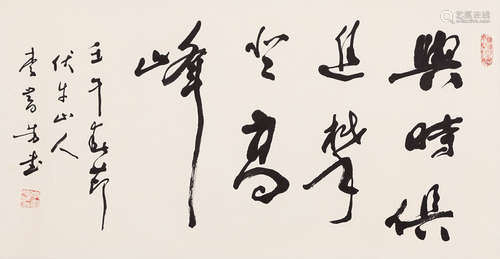 與時俱
進攀
登高
峰
壬午春節
伏牛山人
李書
北京在线